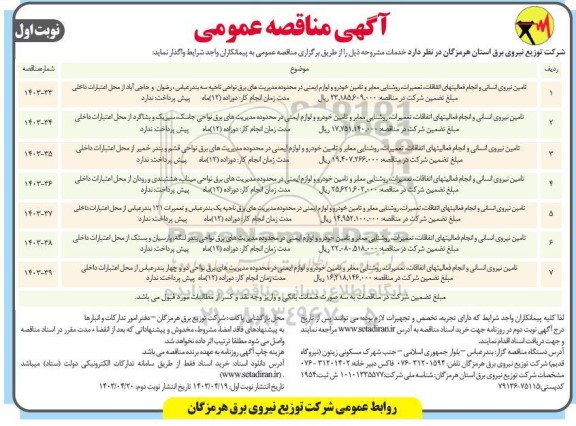 آگهی مناقصه عمومی
نوبت اول
شرکت توزیع نیروی برق استان هرمزگان در نظر دارد خدمات مشروحه ذیل را از طریق برگزاری مناقصه عمومی به پیمانکاران واجد شرایط واگذار نماید:
ردیف موضوع شماره مناقصه
۱ تامین نیروی انسانی و انجام فعالیتهای اتفاقات، تعمیرات، روشنایی معابر و تامین خودرو و لوازم ایمنی در محدوده مدیریت های برق نواحی ناحیه سه بندرعباس، رضوان و حاجی آباد از محل اعتبارات داخلی ۱۴۰۳-۳۳
مبلغ تضمین شرکت در مناقصه: ۲۳،۱۸۵،۶۰۹،۰۰۰ ریال مدت زمان انجام کار: دوازده (۱۲)ماه پیش پرداخت ندارد
۲ تامین نیروی انسانی و انجام فعالیتهای اتفاقات، تعمیرات، روشنایی معابر و تامین خودرو و لوازم ایمنی در محدوده مدیریت های برق نواحی جاسک، سیریک و بشاگرد از محل اعتبارات داخلی ۱۴۰۳-۳۴
مبلغ تضمین شرکت در مناقصه: ۱۷،۷۵۱،۱۴۰،۰۰۰ ریال مدت زمان انجام کار: دوازده (۱۲)ماه پیش پرداخت ندارد
۳ تامین نیروی انسانی و انجام فعالیتهای اتفاقات، تعمیرات، روشنایی معابر و تامین خودرو و لوازم ایمنی در محدوده مدیریت های برق نواحی قشم و بندر خمیر از محل اعتبارات داخلی ۱۴۰۳-۳۵
مبلغ تضمین شرکت در مناقصه: ۱۹،۴۰۷،۲۶۶،۰۰۰ ریال مدت زمان انجام کار: دوازده (۱۲)ماه پیش پرداخت ندارد
۴ تامین نیروی انسانی و انجام فعالیتهای اتفاقات، تعمیرات، روشنایی معابر و تامین خودرو و لوازم ایمنی در محدوده مدیریت های برق نواحی میناب، هشتبندی و رودان از محل اعتبارات داخلی ۱۴۰۳-۳۶
مبلغ تضمین شرکت در مناقصه: ۲۵،۶۲۱،۶۰۲،۰۰۰ ریال مدت زمان انجام کار: دوازده (۱۲)ماه پیش پرداخت ندارد
۵ تامین نیروی انسانی و انجام فعالیتهای اتفاقات، تعمیرات، روشنایی معابر و تامین خودرو و لوازم ایمنی در محدوده مدیریت های برق نواحی ناحیه یک بندرعباس و تعمیرات ۱۲۱ بندرعباس از محل اعتبارات داخلی ۱۴۰۳-۳۷
مبلغ تضمین شرکت در مناقصه: ۱۴،۹۵۲،۱۰۰،۰۰۰ ریال مدت زمان انجام کار: دوازده (۱۲)ماه پیش پرداخت ندارد
۶ تامین نیروی انسانی و انجام فعالیتهای اتفاقات، تعمیرات، روشنایی معابر و تامین خودرو و لوازم ایمنی در محدوده مدیریت های برق نواحی بندر لنگه، پارسیان و بستک از محل اعتبارات داخلی ۱۴۰۳-۳۸
مبلغ تضمین شرکت در مناقصه: ۲۲،۰۸۰،۵۱۸،۰۰۰ ریال مدت زمان انجام کار: دوازده (۱۲)ماه پیش پرداخت ندارد
۷ تامین نیروی انسانی و انجام فعالیتهای اتفاقات، تعمیرات، روشنایی معابر و تامین خودرو و لوازم ایمنی در محدوده مدیریت های برق نواحی دو و چهار بندرعباس از محل اعتبارات داخلی ۱۴۰۳-۳۹
مبلغ تضمین شرکت در مناقصه: ۱۶،۲۱۸،۱۴۶،۰۰۰ ریال مدت زمان انجام کار: دوازده (۱۲)ماه پیش پرداخت ندارد
مبلغ تضمین شرکت در مناقصات به سه صورت ضمانت بانکی و واریز وجه نقد و کسر از مطالبات مورد قبول می باشد.
لذا کلیه پیمانکاران واجد شرایط که دارای تجربه، تخصص و تجهیزات لازم بوده می توانند پس از تاریخ
درج آگهی نوبت دوم در روزنامه جهت خرید اسناد مناقصه به آدرس www.setadiran.ir مراجعه نمایند
و جهت دریافت اسناد اقدام نمایند.
آدرس دستگاه مناقصه گزار: بندرعباس – بلوار جمهوری اسلامی – جنب شهرک مسکونی زیتون (نیروگاه
قدیم) شرکت توزیع نیروی برق هرمزگان تلفن: ۳۱۲۰۱۵۹۴-۰۷۶ فاکس دبیر خانه: ۳۱۲۰۱۴۰۲-۰۷۶
مشخصات شرکت توزیع نیروی برق استان هرمزگان: شناسه ملی شرکت ۱۰۱۰۱۳۳۵۵۷۷ ش ثبت: ۱۹۵۴
کدپستی: ۷۵۱۱۵-۷۹۱۳۶
محل بازگشایی پاکات: شرکت توزیع نیروی برق هرمزگان – دفتر امور تدارکات و انبارها
به پیشنهادهای فاقد امضا، مشروط، مخدوش و پیشنهاداتی که بعد از انقضا، مدت مقرر در اسناد مناقصه
واصل می شود مطلقا ترتیب اثر داده نخواهد شد.
هزینه چاپ آگهی روزنامه به عهده برنده مناقصه می باشد.
تبادل اسناد: دانلود اسناد، خرید اسناد فقط از طریق سامانه تدارکات الکترونیکی دولت (ستاد) میباشد
(www.setadiran.ir)
تاریخ انتشار نوبت اول: ۱۴۰۳/۰۴/۱۹ تاریخ انتشار نوبت دوم: ۱۴۰۳/۰۴/۲۰
روابط عمومی شرکت توزیع نیروی برق هرمزگان